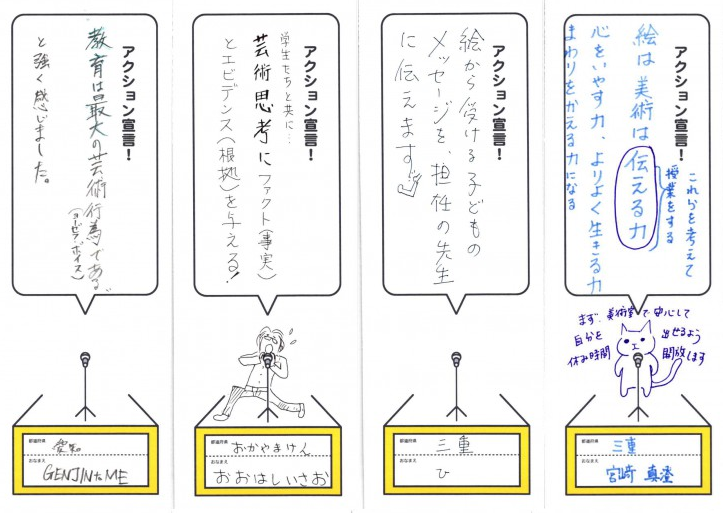 アクション宣言！
教育は最大の芸術行為である。
（ヨーゼフ・ボイス）
と強く感じました。
都道府県
愛知
おなまえ
GENJINたME
アクション宣言！
学生たちと共に…
芸術思考にファクト（事実）
とエビデンス（根拠）を与える！
都道府県
おかやまけん
おなまえ
おおはしいさお
アクション宣言！
絵から受ける子どもの
メッセージを、担任の先生
に伝えます
都道府県
三重
おなまえ
ひ
アクション宣言！
これからを考えて
授業をする
絵は美術は伝える力
心をいやす力、よりよく生きる力
まわりをかえる力になる
まず、美術室で安心して
自分を
出せるよう
休み時間
開放します
都道府県
三重
おなまえ
宮崎 真澄